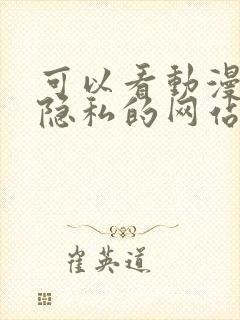 可以看動漫
隐私的网佔
崔英道